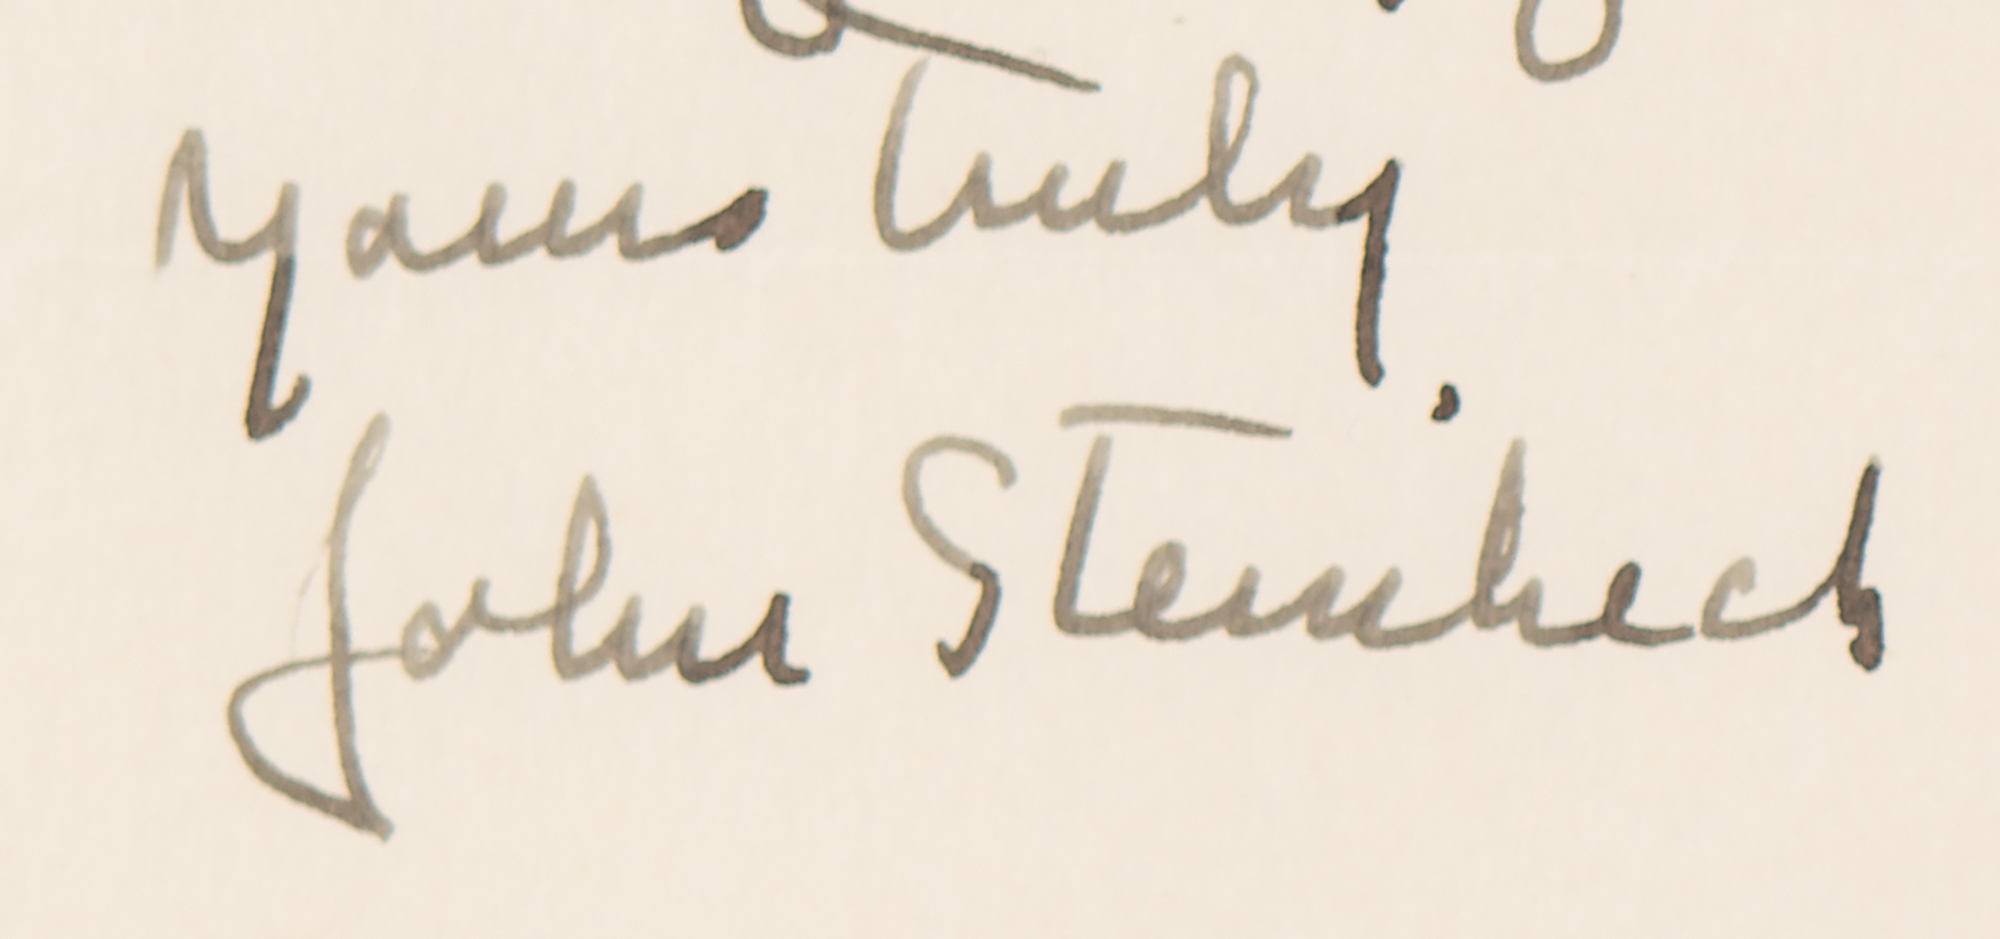 Yours Truly
John Steinbeck